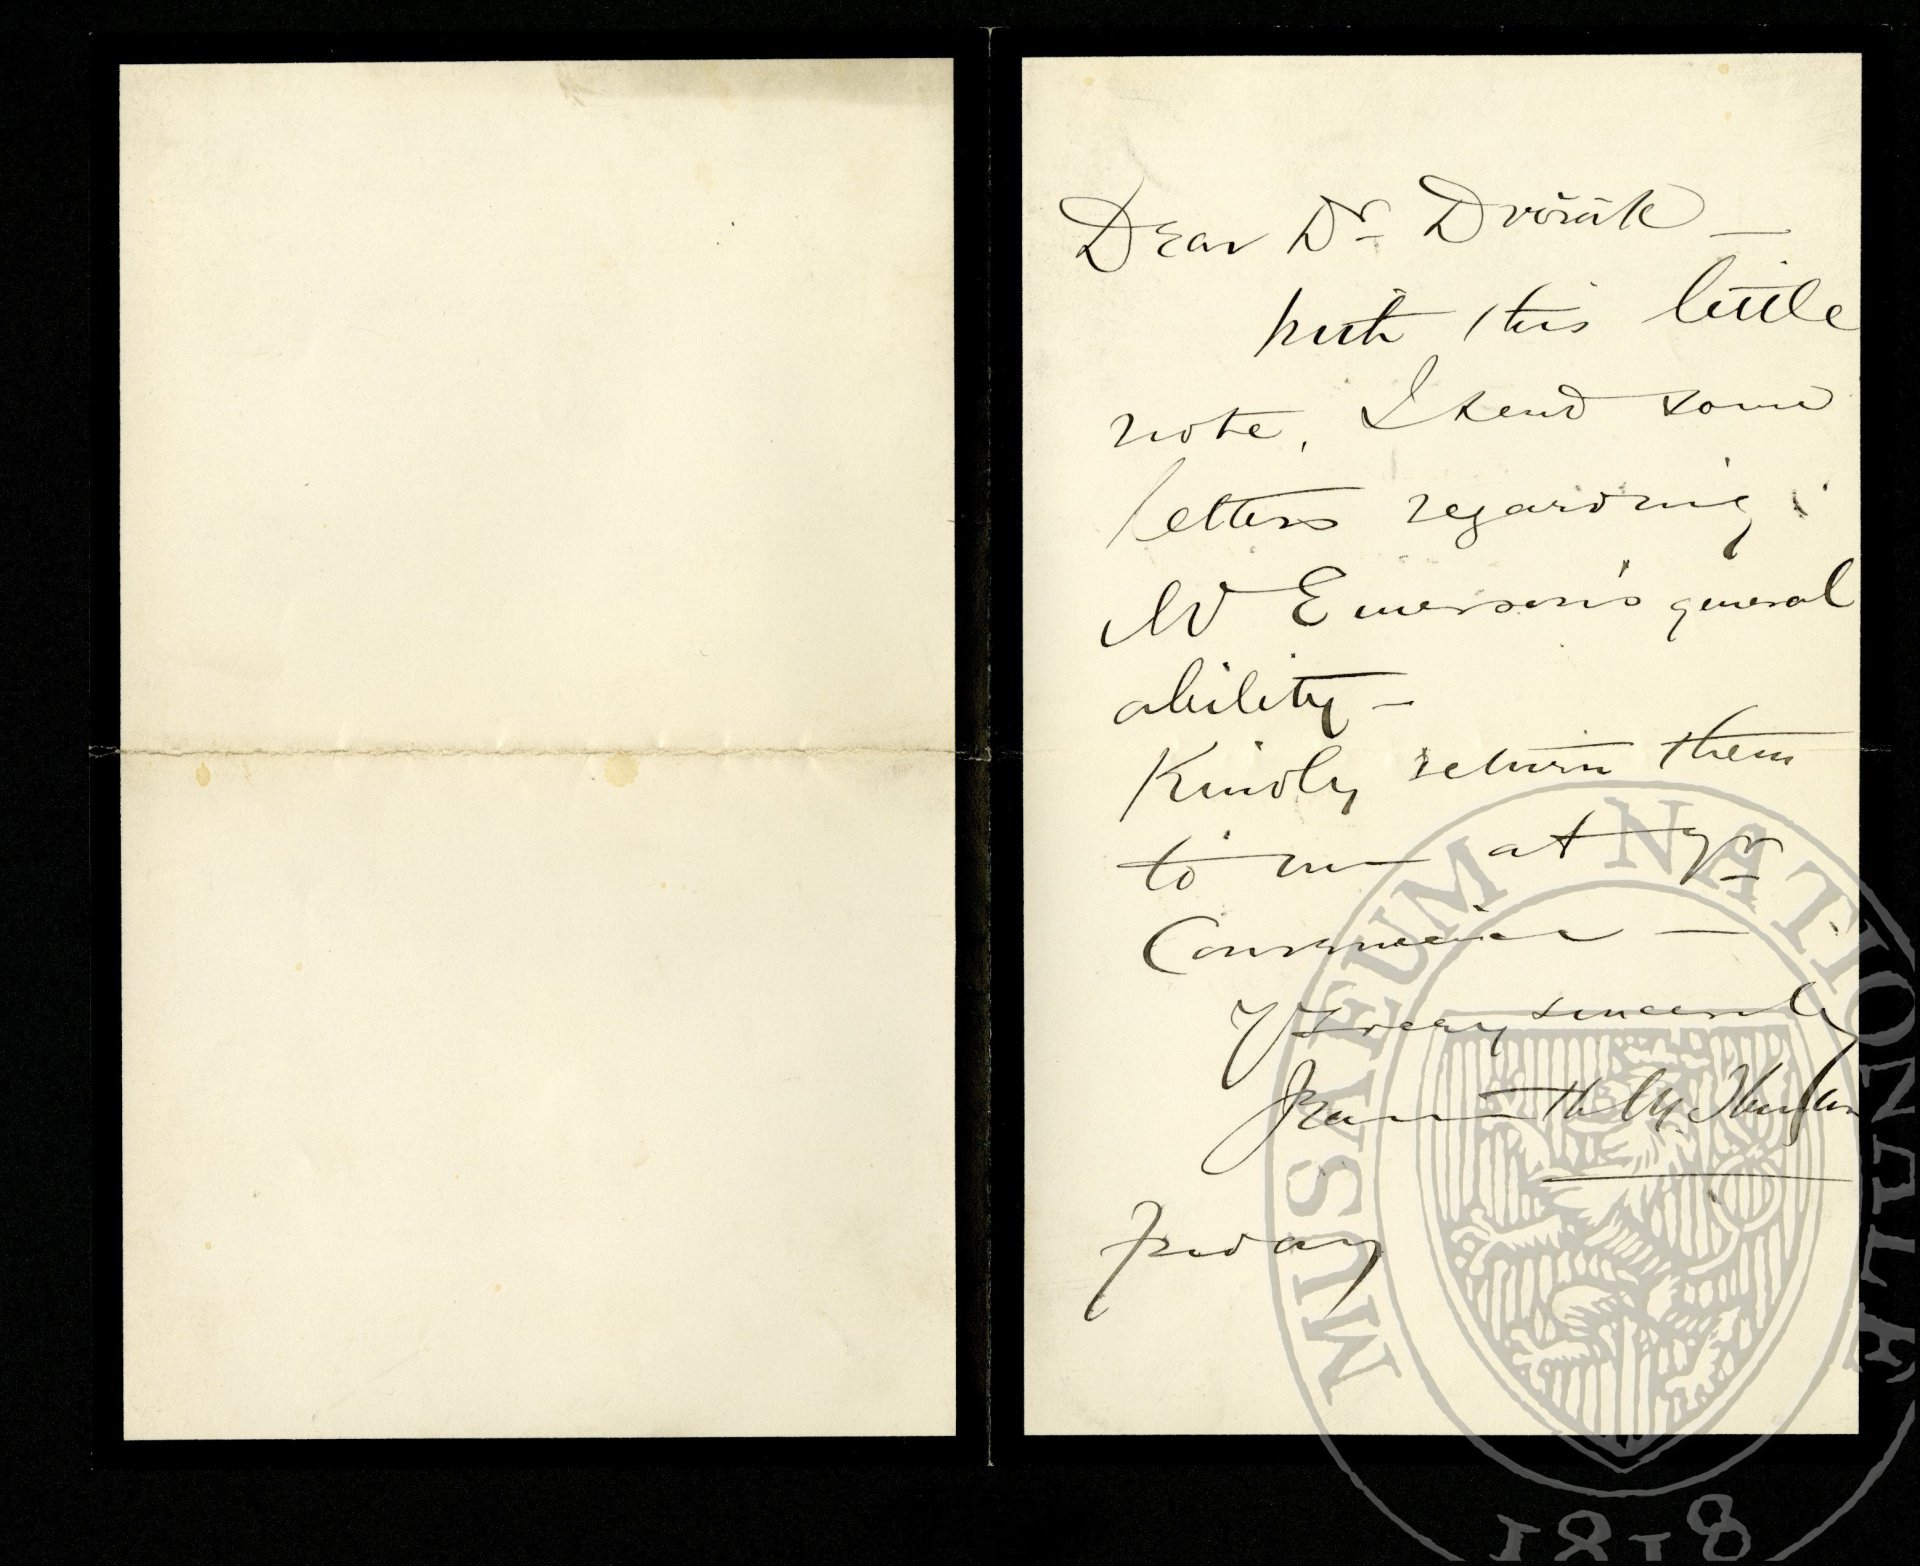 Dear Dr Dvořák —
with this little
note, I send some
letters regarding
Mr Emerson's general
ability —
Kindly return them
to me at yr
Convenience —
Yrs very sincerely
Jeannette M. Thurber
Friday
MUSAEUM NATIONALE
1818